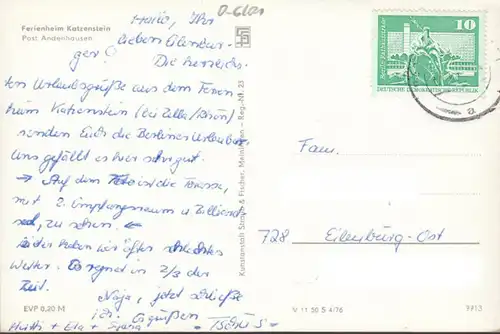 Ferienheim Katzenstein
Post Andenhausen
D-6101
Hallo, Ihr
lieben Eilenbur-
ger! Die herzlichs-
ten Urlaubsgrüße aus dem Ferien-
heim Katzenstein (bei Zella/Rhön)
senden Euch die Berliner Urlauber.
Uns gefällt es hier sehr gut.
→ Auf dem Foto ist die Terrasse,
mit 2. Empfangsraum u. Billiard-
zu sehen. ←
Leider haben wir öfter schlechtes
Wetter. Es regnet in 2/3 der
Zeit. Naja, jetzt schließe
ich. Es grüßen
+ Ela +
EVP 0,20 M
Reg.-Nr. 23
10
DEUTSCHE DEMOKRATISCHE REPUBLIK
Fam.
728 Eilenburg-Ost
V 11 50 S 4/76
7713